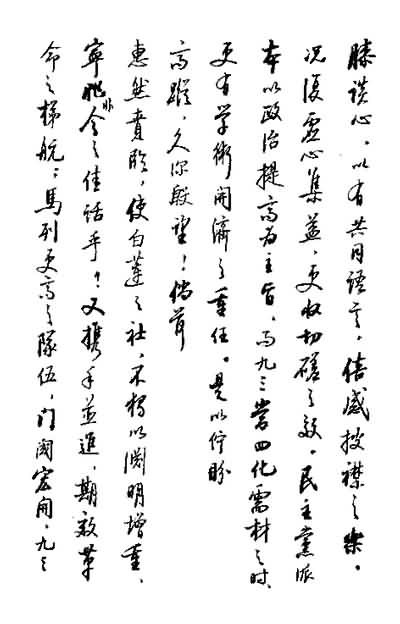 膝谈心，以有共同语言，倍感披襟之樂。
况復虚心集益，更收切磋之效。民主黨派
本以政治提高为主旨，而九三當四化需材之时，
更有学術開濟之重任。是以佇盼
高蹤，久深殷望！倘荷
惠然賁臨，使白蓮之社，不獨以渊明增重，
寧非今之佳話乎！又攜手並進，期效革
命之梯航；馬列更高之隊伍，门阈宏開，九三